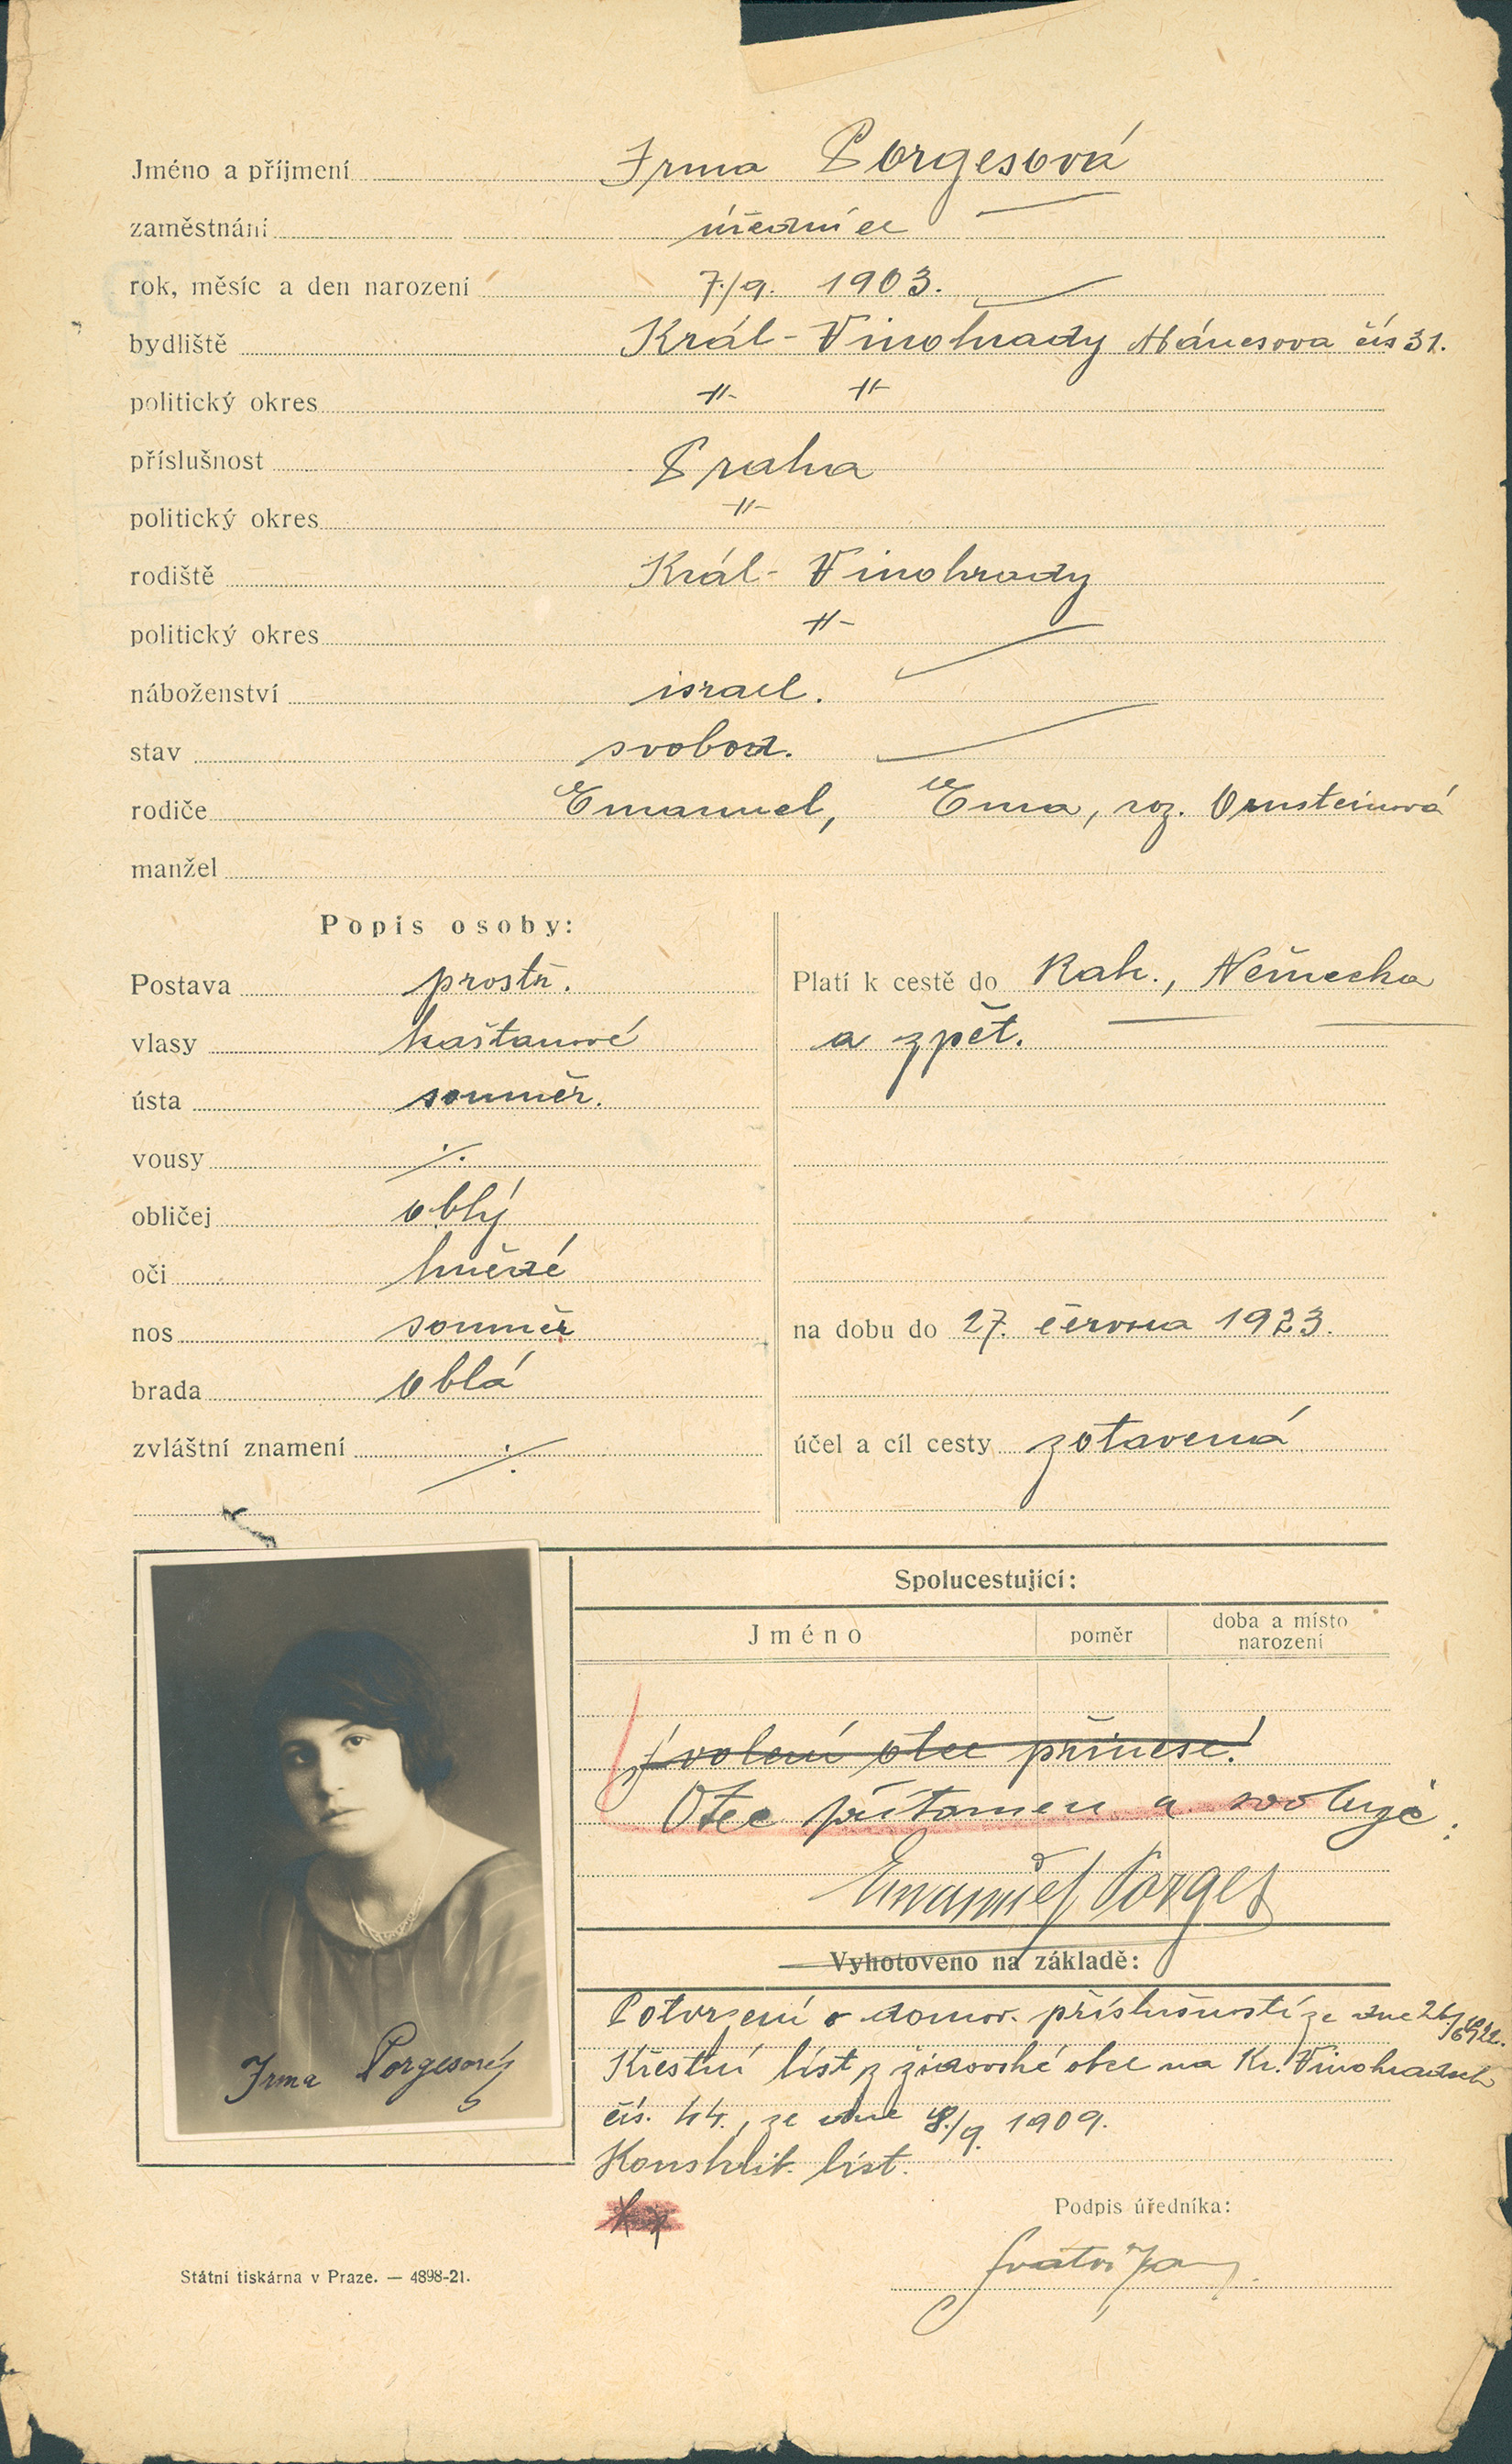 Jméno a příjmení Irma Porgesová
zaměstnání úřednice
rok, měsíc a den narození 7./9. 1903.
bydliště Král-Vinohrady Mánesova čís 31.
politický okres -"- -"-
příslušnost Praha
politický okres -"-
rodiště Král-Vinohrady
politický okres -"-
náboženství israel.
stav svobod.
rodiče Emanuel, Ema, roz. Ornsteinová
manžel
Popis osoby:
Postava prostř.
vlasy kaštanové
ústa souměr.
vousy ./.
obličej oblý
oči hnědé
nos souměr
brada oblá
zvláštní znamení ./.
Platí k cestě do Rak., Německa
a zpět.
na dobu do 27. června 1923.
účel a cíl cesty zotavená
Spolucestující:
Jméno poměr doba a místo
narození
svolení otce přinese!
Otec přítomen a svoluje:
Emanuel Porges
Vyhotoveno na základě:
Potvrzení o domov. příslušnosti ze dne 26/6 1922.
Křestní list z židovské obce na Kr. Vinohradech
čís. 44., ze dne 8./9. 1909.
Konskrib. list.
Podpis úředníka:
Irma Porgesová
Státní tiskárna v Praze. — 4898-21.